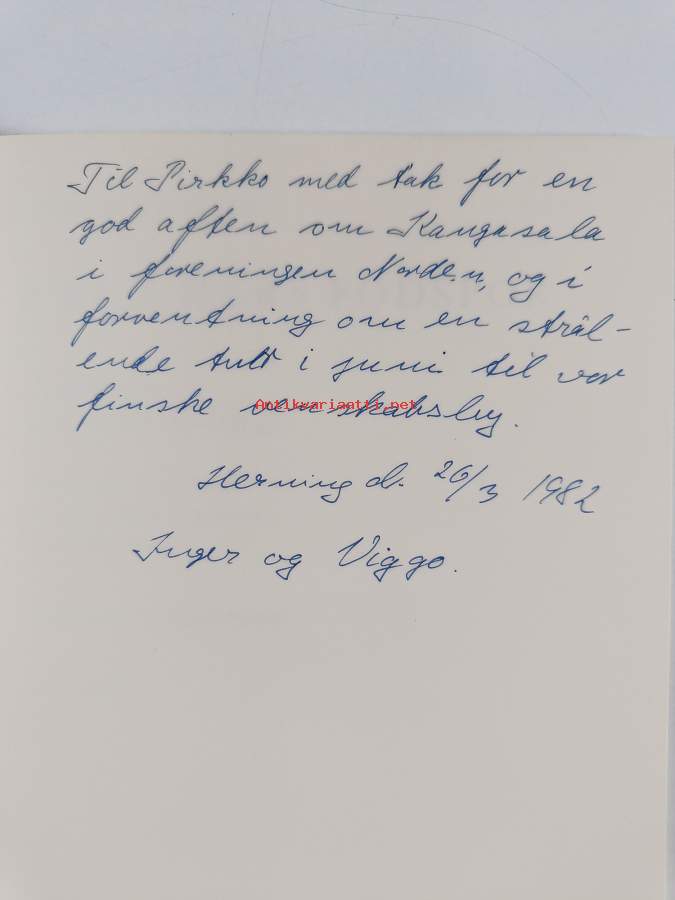 Til Pirkko med tak for en
god aften om Kangasala
i foreningen Norden, og i
forventning om en strål-
ende tur i juni til vor
finske venskabsby.
Antikvariaatti.net
Herning d. 26/3 1982
Inger og Viggo.